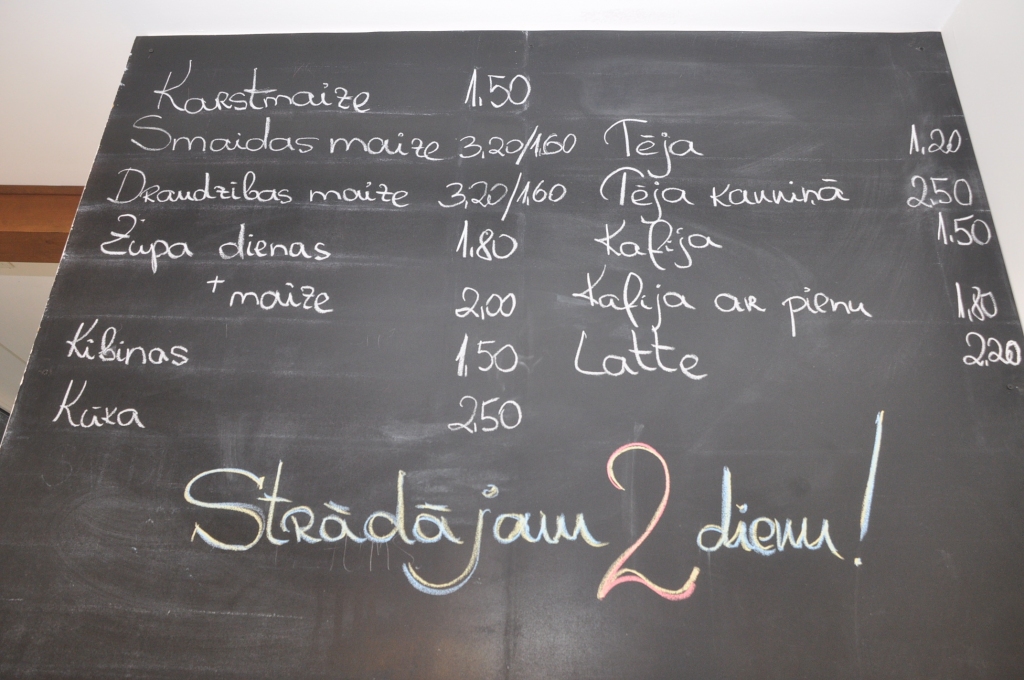 Karstmaize 1.50
Smaidas maize 3,20/1.60
Draudzības maize 3,20/1,60
Zupa dienas 1.80
+ maize 2,00
Kibinas 1.50
Kūka 2,50
Tēja 1.20
Tēja kanniņā 2.50
Kafija 1.50
Kafija ar pienu 1.80
Latte 2.20
Strādājam 2 dienu!